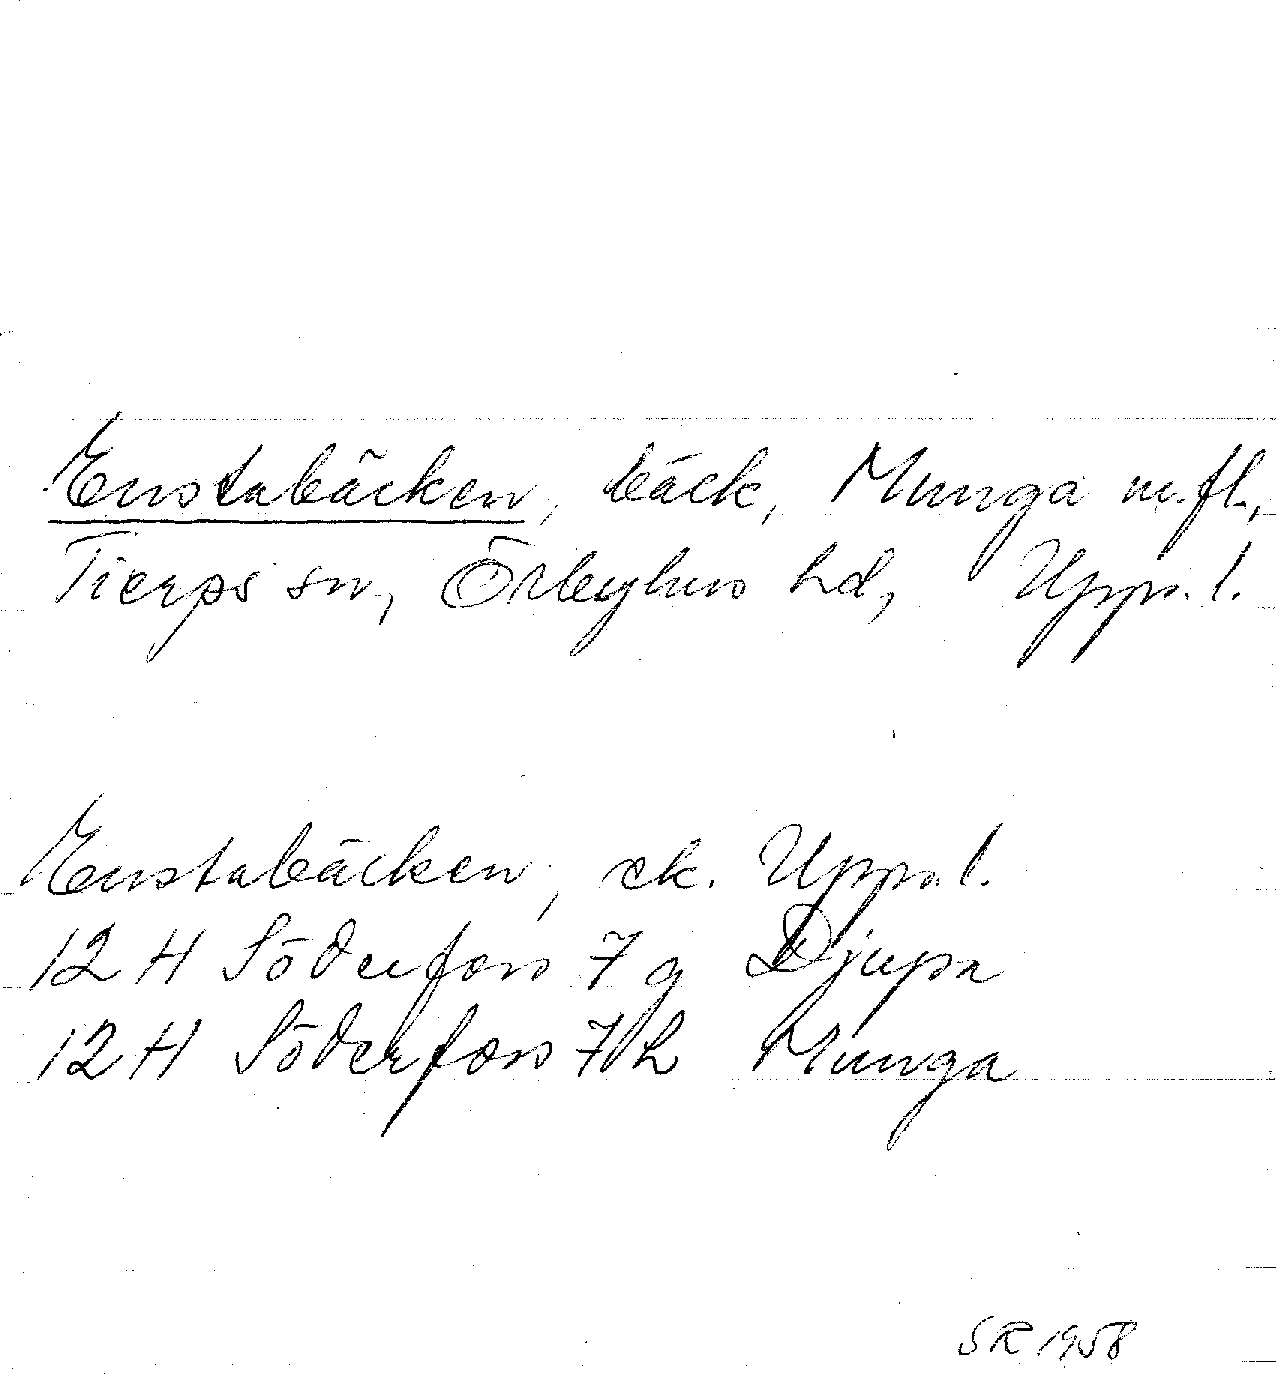 Enstabäcken, bäck, Munga m.fl.,
Tierps sn, Örbyhus hd, Upps. l.
Enstabäcken, ek. Upps. l.
12 H Söderfors 7 g Djupa
12 H Söderfors 7 h Munga
SR 1958